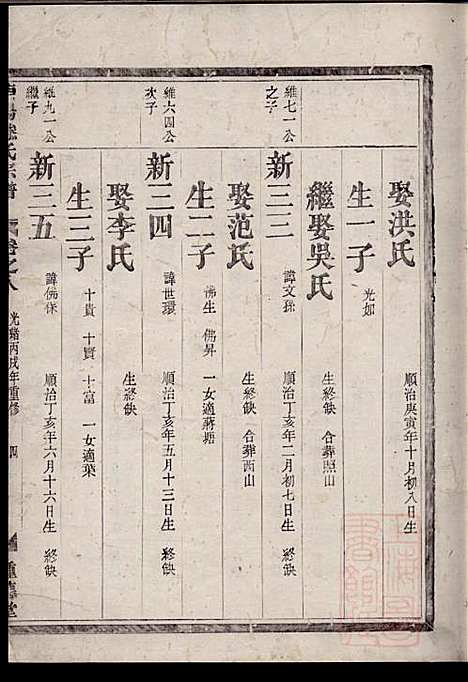 娶洪氏 順治庚寅年十月初八日生
生一子 光如
繼娶吳氏 生終缺 合葬照山
維七一公之子
新三三 諱文孫 順治丁亥年二月初七日生 終缺
娶范氏 生終缺 合葬西山
生二子 佛生 佛昇 一女適蔣塘
維六四公次子
新三四 諱世環 順治丁亥年五月十三日生 終缺
娶李氏 生終缺
生三子 十貴 十賢 十富 一女適葉
維九一公繼子
新三五 諱佛保 順治丁亥年六月十六日生 終缺
陽 氏宗譜 卷之八 光緒丙戌年重修 四 堂